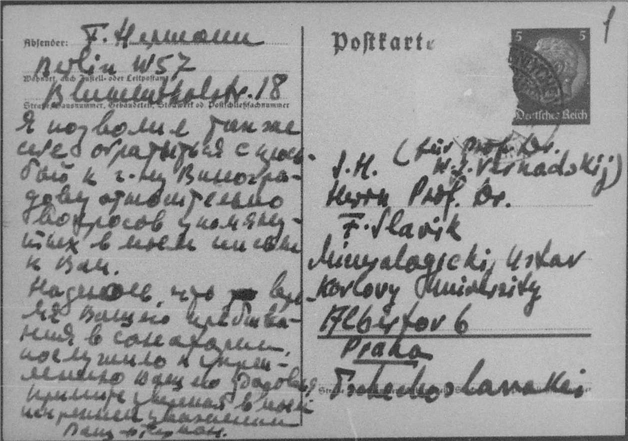 Absender: F. Hermann
Berlin W57
Wohnort, auch Zustell- oder Leitpostamt
Blumenthalstr. 18
Straße, Hausnummer, Gebäudeteil, Stockwerk od. Postschließfachnummer
Я позволил также
себе обратиться с прось-
бой к г-ну Виногра-
дову относительно
вопросов упомяну-
тых в моем письме
к Вам.
Надеюсь, что вре-
мя Вашего пребыва-
ния в санатории,
послужило к укреп-
лению Вашего здоровья,
в моем
искреннем уважении
Ваш
Postkarte
1
5 5
Deutsches Reich
(für Prof. Dr.
S.H. W.I. Vernadskij)
Herrn Prof. Dr.
F. Slavik
Mineralogicki Ustav
Karlovy University
Albertov 6
Praha
Tschechoslovakei